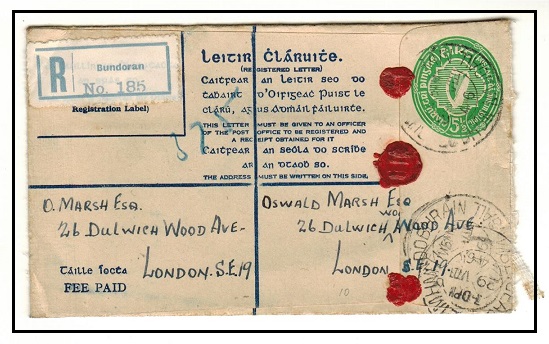 R
Bundoran
No. 185
Registration Label)
Leitir Ċláruite.
(REGISTERED LETTER)
Caitfear an leitir seo do
tabairt d'Oifigeac Puist le
clárú, agus admáil fáiluite.
THIS LETTER MUST BE GIVEN TO AN OFFICER
OF THE POST OFFICE TO BE REGISTERED AND
A RECEIPT OBTAINED FOR IT
Caitfear an seola do scríbe
ar an dtaob so.
THE ADDRESS MUST BE WRITTEN ON THIS SIDE.
O. MARSH ESQ.
26 DULWICH WOOD AVE-
LONDON. S.E.19
Táille íocta
FEE PAID
OSWALD MARSH ESQ
26 DULWICH WOOD AVE-
LONDON S.E.19.
10